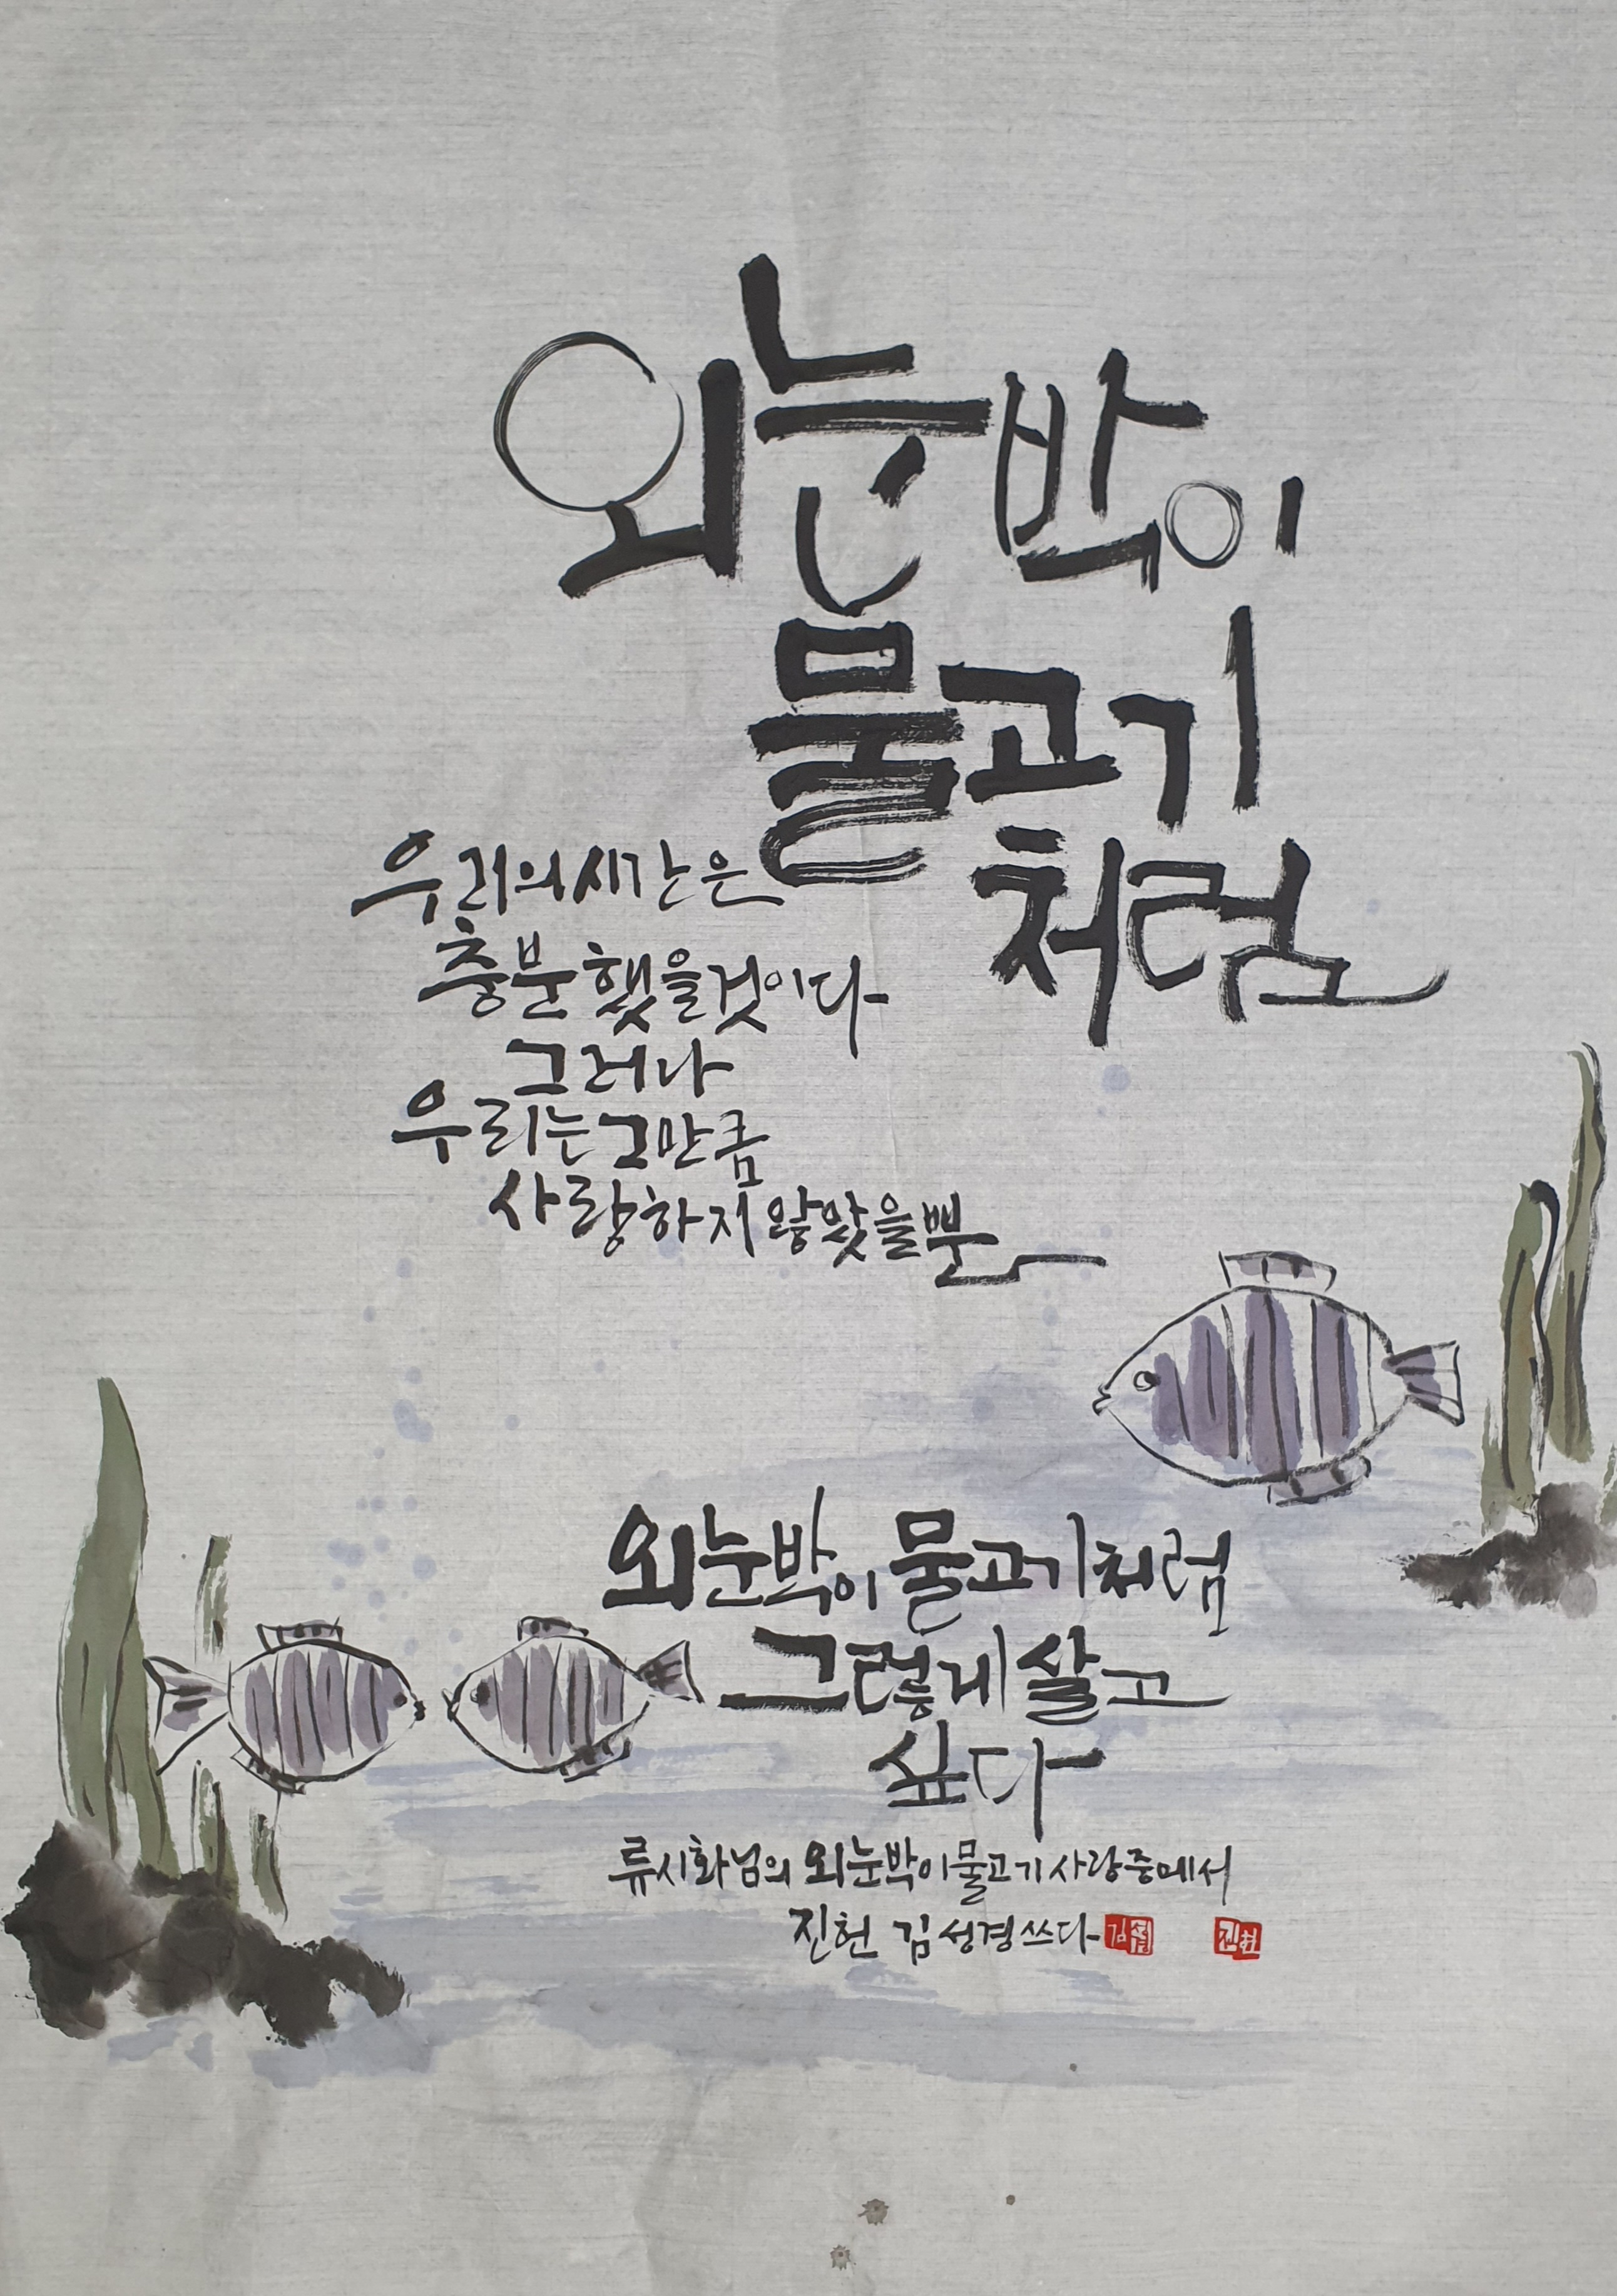 외눈박이
물고기
처럼
우리의 시간은
충분했을 것이다
그러나
우리는 그만큼
사랑하지 않았을 뿐
외눈박이 물고기처럼
그렇게 살고
싶다
류시화님의 외눈박이 물고기 사랑 중에서
진헌 김성경 쓰다